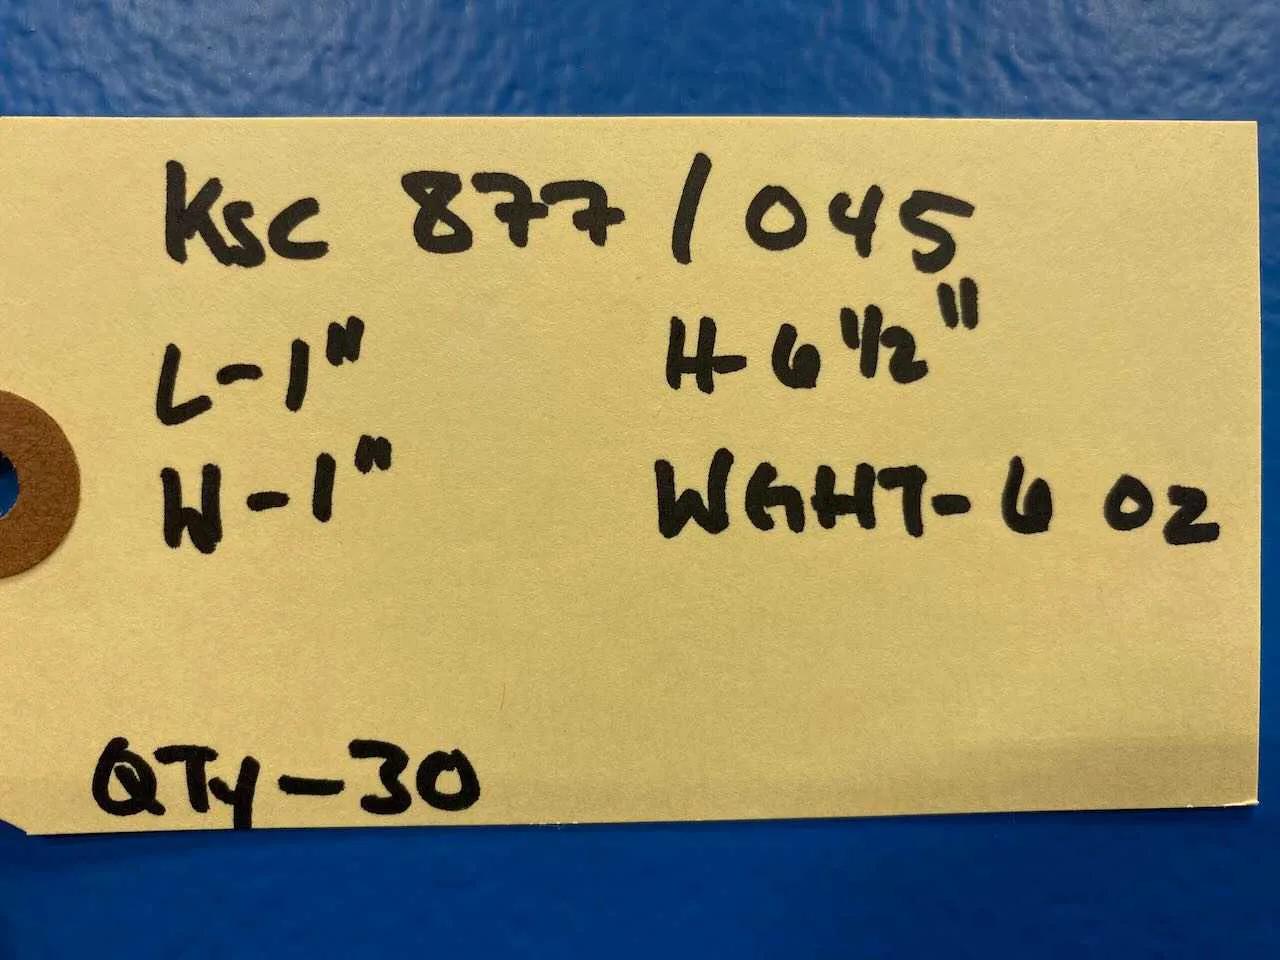 KSC 877 / 045
L-1" H-6 1/2"
W-1" WGHT-6 OZ
QTy-30